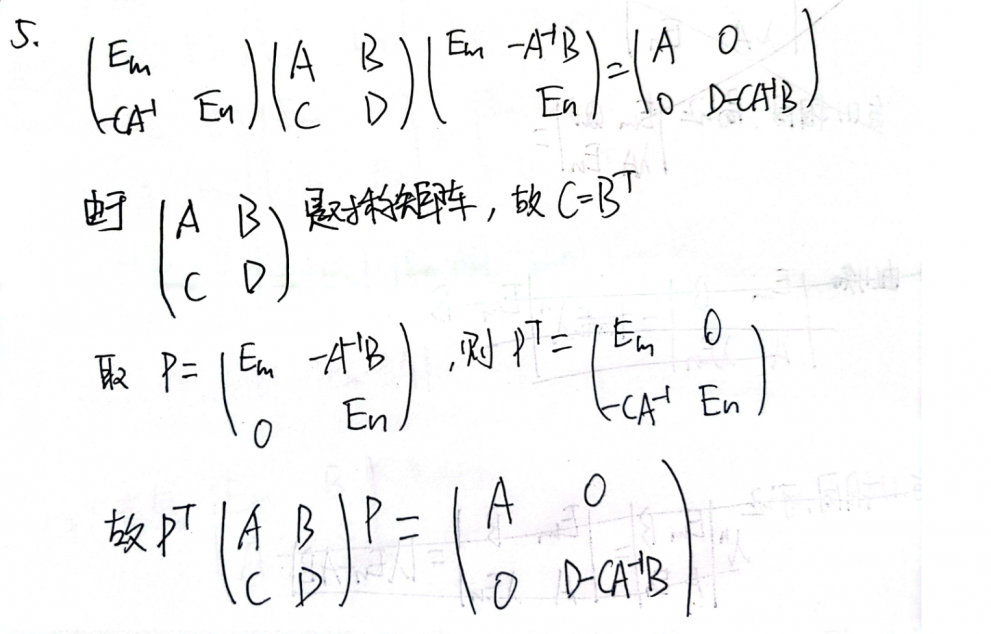 5. (Em ; -CA⁻¹ En) (A B ; C D) (Em -A⁻¹B ; En) = (A 0 ; 0 D-CA⁻¹B)
由于 (A B ; C D) 是对称矩阵, 故 C=Bᵀ
取 P= (Em -A⁻¹B ; 0 En) , 则 Pᵀ= (Em 0 ; -CA⁻¹ En)
故 Pᵀ (A B ; C D) P = (A 0 ; 0 D-CA⁻¹B)